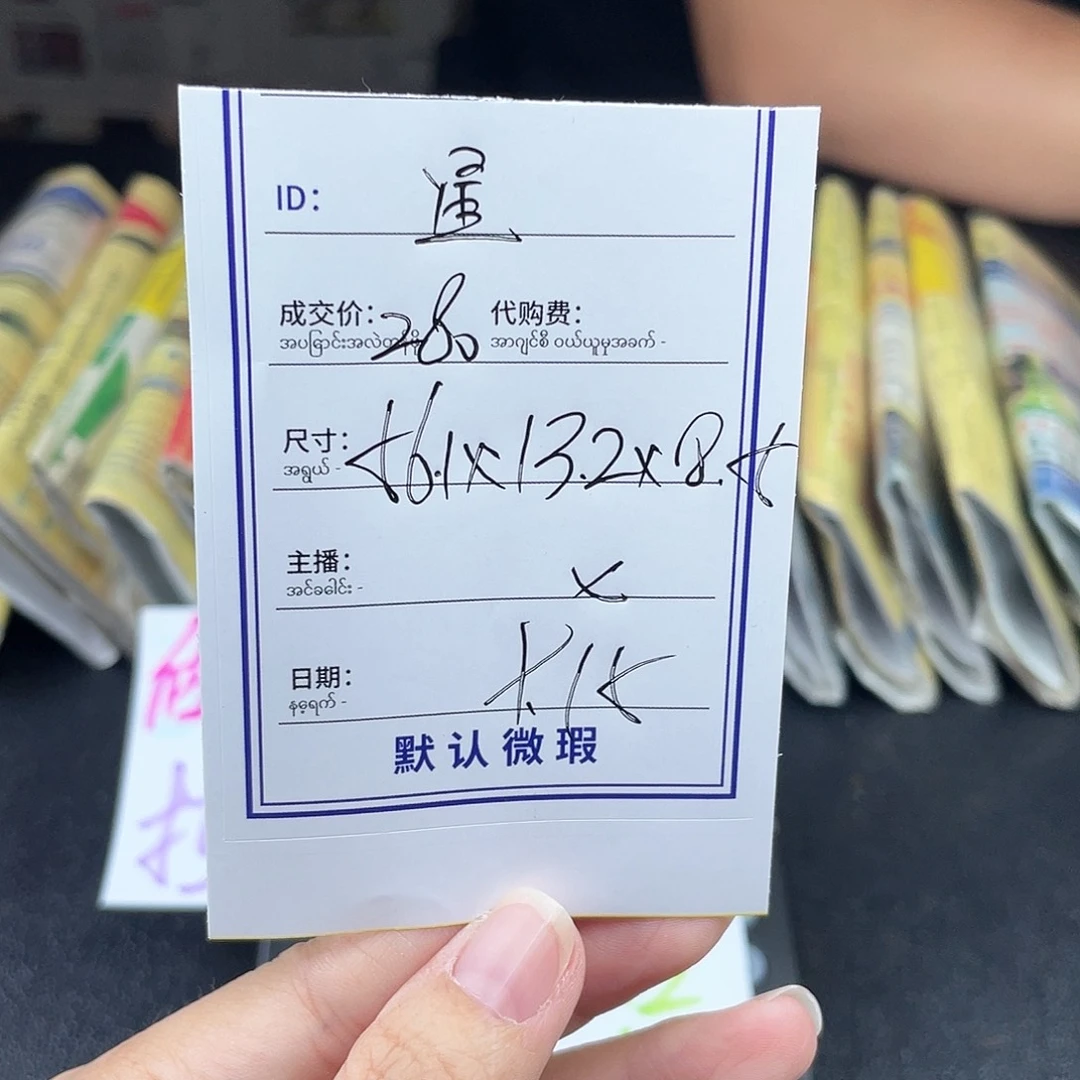 ID：
成交价：280 代购费：
အပြောင်းအလဲတန်ဖိုး အကျင့်စီ ဝယ်ယူမှုအခက် -
尺寸：56.1x13.2x8.5
အရွယ် -
主播：x
အင်ခေါင်း -
日期：5.15
နေ့ရက် -
默认微瑕